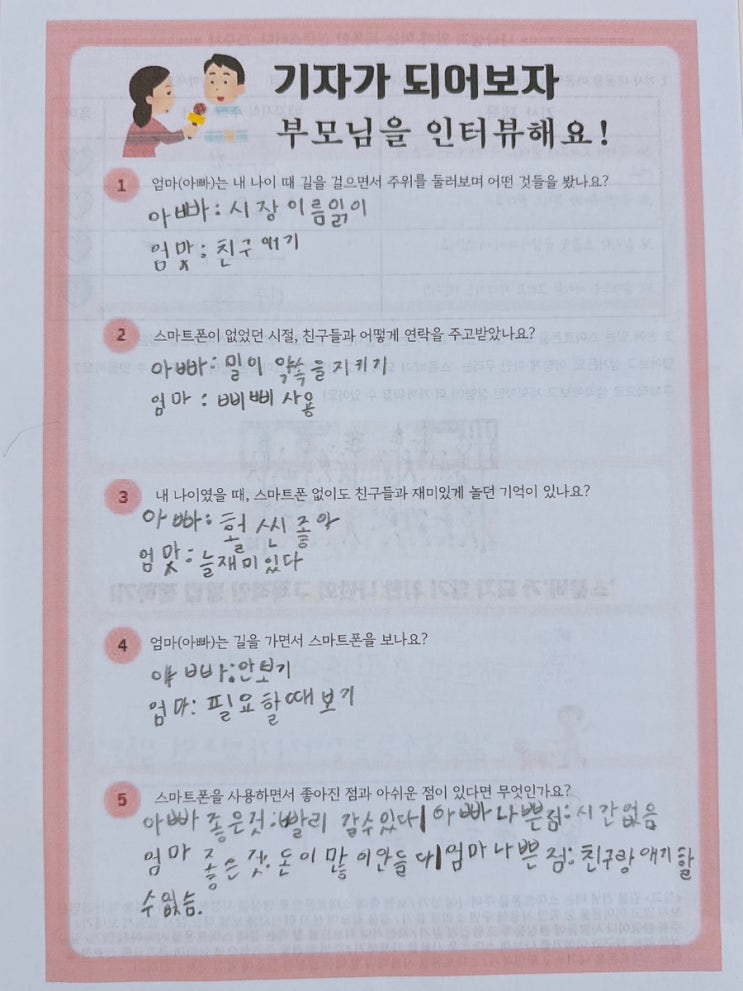 기자가 되어보자
부모님을 인터뷰해요!
1 엄마(아빠)는 내 나이 때 길을 걸으면서 주위를 둘러보며 어떤 것들을 봤나요?
아빠: 시장 이름읽이
엄맞: 친구 얘기
2 스마트폰이 없었던 시절, 친구들과 어떻게 연락을 주고받았나요?
아빠: 밀이 약속을지키기
엄마: 삐삐 사용
3 내 나이였을 때, 스마트폰 없이도 친구들과 재미있게 놀던 기억이 있나요?
아빠: 헐 씬 좋아
엄맞: 늘재미있다
4 엄마(아빠)는 길을 가면서 스마트폰을 보나요?
아빠:안보기
엄마: 필요할때보기
5 스마트폰을 사용하면서 좋아진 점과 아쉬운 점이 있다면 무엇인가요?
아빠 좋은것:빨리 갈수있다| 아빠나쁜점: 시간없음
엄마 좋은것:돈이 많이안들다|엄마나쁜 점: 친구랑 얘기할
수없슴.